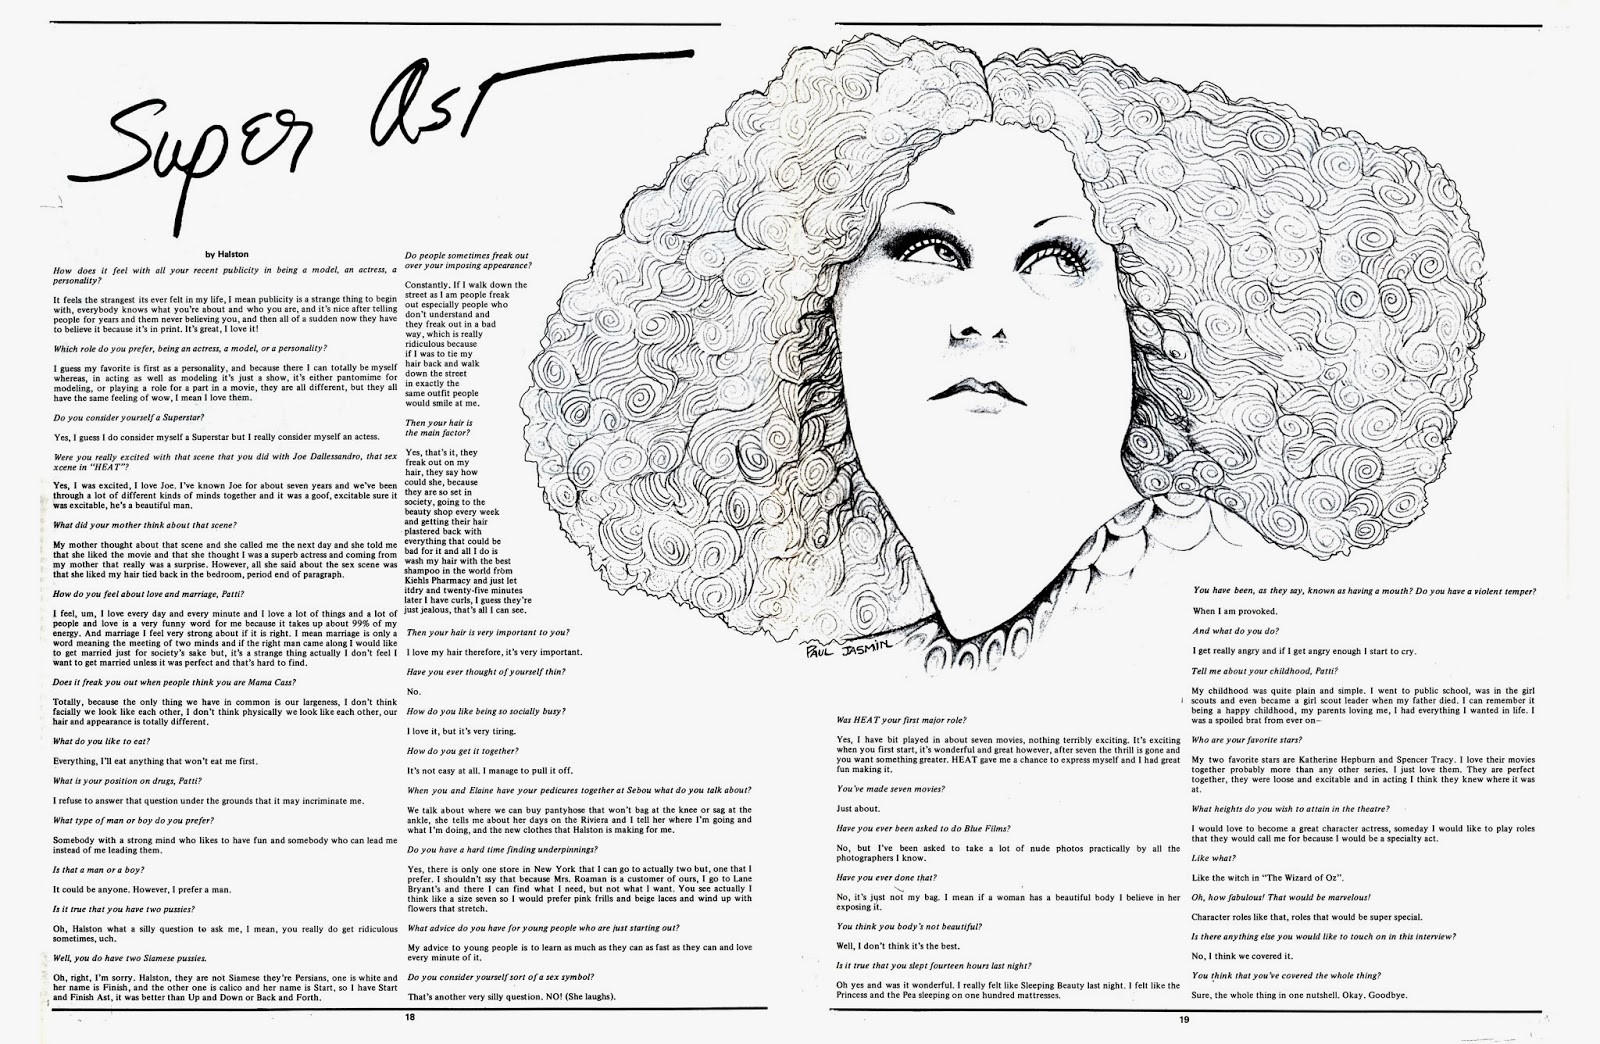 Super Ast
by Halston
How does it feel with all your recent publicity in being a model, an actress, a
personality?
It feels the strangest its ever felt in my life, I mean publicity is a strange thing to begin
with, everybody knows what you're about and who you are, and it's nice after telling
people for years and them never believing you, and then all of a sudden now they have
to believe it because it's in print. It's great, I love it!
Which role do you prefer, being an actress, a model, or a personality?
I guess my favorite is first as a personality, and because there I can totally be myself
whereas, in acting as well as modeling it's just a show, it's either pantomime for
modeling, or playing a role for a part in a movie, they are all different, but they all
have the same feeling of wow, I mean I love them.
Do you consider yourself a Superstar?
Yes, I guess I do consider myself a Superstar but I really consider myself an actess.
Were you really excited with that scene that you did with Joe Dallessandro, that sex
xcene in "HEAT"?
Yes, I was excited, I love Joe. I've known Joe for about seven years and we've been
through a lot of different kinds of minds together and it was a goof, excitable sure it
was excitable, he's a beautiful man.
What did your mother think about that scene?
My mother thought about that scene and she called me the next day and she told me
that she liked the movie and that she thought I was a superb actress and coming from
my mother that really was a surprise. However, all she said about the sex scene was
that she liked my hair tied back in the bedroom, period end of paragraph.
How do you feel about love and marriage, Patti?
I feel, um, I love every day and every minute and I love a lot of things and a lot of
people and love is a very funny word for me because it takes up about 99% of my
energy. And marriage I feel very strong about if it is right. I mean marriage is only a
word meaning the meeting of two minds and if the right man came along I would like
to get married just for society's sake but, it's a strange thing actually I don't feel I
want to get married unless it was perfect and that's hard to find.
Does it freak you out when people think you are Mama Cass?
Totally, because the only thing we have in common is our largeness, I don't think
facially we look like each other, I don't think physically we look like each other, our
hair and appearance is totally different.
What do you like to eat?
Everything, I'll eat anything that won't eat me first.
What is your position on drugs, Patti?
I refuse to answer that question under the grounds that it may incriminate me.
What type of man or boy do you prefer?
Somebody with a strong mind who likes to have fun and somebody who can lead me
instead of me leading them.
Is that a man or a boy?
It could be anyone. However, I prefer a man.
Is it true that you have two pussies?
Oh, Halston what a silly question to ask me, I mean, you really do get ridiculous
sometimes, uch.
Well, you do have two Siamese pussies.
Oh, right, I'm sorry. Halston, they are not Siamese they're Persians, one is white and
her name is Finish, and the other one is calico and her name is Start, so I have Start
and Finish Ast, it was better than Up and Down or Back and Forth.
Do people sometimes freak out
over your imposing appearance?
Constantly. If I walk down the
street as I am people freak
out especially people who
don't understand and
they freak out in a bad
way, which is really
ridiculous because
if I was to tie my
hair back and walk
down the street
in exactly the
same outfit people
would smile at me.
Then your hair is
the main factor?
Yes, that's it, they
freak out on my
hair, they say how
could she, because
they are so set in
society, going to the
beauty shop every week
and getting their hair
plastered back with
everything that could be
bad for it and all I do is
wash my hair with the best
shampoo in the world from
Kiehls Pharmacy and just let
itdry and twenty-five minutes
later I have curls, I guess they're
just jealous, that's all I can see.
Then your hair is very important to you?
I love my hair therefore, it's very important.
Have you ever thought of yourself thin?
No.
How do you like being so socially busy?
I love it, but it's very tiring.
How do you get it together?
It's not easy at all. I manage to pull it off.
When you and Elaine have your pedicures together at Sebou what do you talk about?
We talk about where we can buy pantyhose that won't bag at the knee or sag at the
ankle, she tells me about her days on the Riviera and I tell her where I'm going and
what I'm doing, and the new clothes that Halston is making for me.
Do you have a hard time finding underpinnings?
Yes, there is only one store in New York that I can go to actually two but, one that I
prefer. I shouldn't say that because Mrs. Roaman is a customer of ours, I go to Lane
Bryant's and there I can find what I need, but not what I want. You see actually I
think like a size seven so I would prefer pink frills and beige laces and wind up with
flowers that stretch.
What advice do you have for young people who are just starting out?
My advice to young people is to learn as much as they can as fast as they can and love
every minute of it.
Do you consider yourself sort of a sex symbol?
That's another very silly question. NO! (She laughs).
18
PAUL JASMIN
Was HEAT your first major role?
Yes, I have bit played in about seven movies, nothing terribly exciting. It's exciting
when you first start, it's wonderful and great however, after seven the thrill is gone and
you want something greater. HEAT gave me a chance to express myself and I had great
fun making it.
You've made seven movies?
Just about.
Have you ever been asked to do Blue Films?
No, but I've been asked to take a lot of nude photos practically by all the
photographers I know.
Have you ever done that?
No, it's just not my bag. I mean if a woman has a beautiful body I believe in her
exposing it.
You think you body's not beautiful?
Well, I don't think it's the best.
Is it true that you slept fourteen hours last night?
Oh yes and was it wonderful. I really felt like Sleeping Beauty last night. I felt like the
Princess and the Pea sleeping on one hundred mattresses.
You have been, as they say, known as having a mouth? Do you have a violent temper?
When I am provoked.
And what do you do?
I get really angry and if I get angry enough I start to cry.
Tell me about your childhood, Patti?
My childhood was quite plain and simple. I went to public school, was in the girl
scouts and even became a girl scout leader when my father died. I can remember it
being a happy childhood, my parents loving me, I had everything I wanted in life. I
was a spoiled brat from ever on—
Who are your favorite stars?
My two favorite stars are Katherine Hepburn and Spencer Tracy. I love their movies
together probably more than any other series. I just love them. They are perfect
together, they were loose and excitable and in acting I think they knew where it was
at.
What heights do you wish to attain in the theatre?
I would love to become a great character actress, someday I would like to play roles
that they would call me for because I would be a specialty act.
Like what?
Like the witch in "The Wizard of Oz".
Oh, how fabulous! That would be marvelous!
Character roles like that, roles that would be super special.
Is there anything else you would like to touch on in this interview?
No, I think we covered it.
You think that you've covered the whole thing?
Sure, the whole thing in one nutshell. Okay. Goodbye.
19